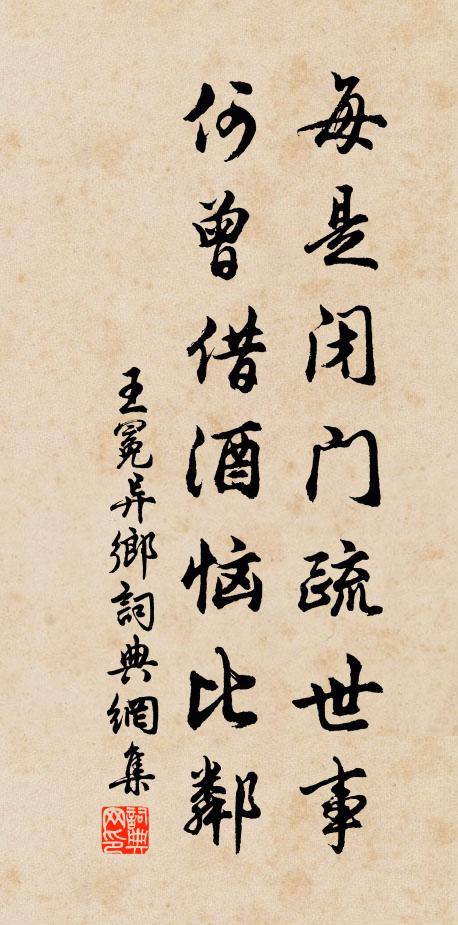 每是闭门疏世事
何曾借酒恼比鄰
王冕异鄉詞典網集
詞典
网印